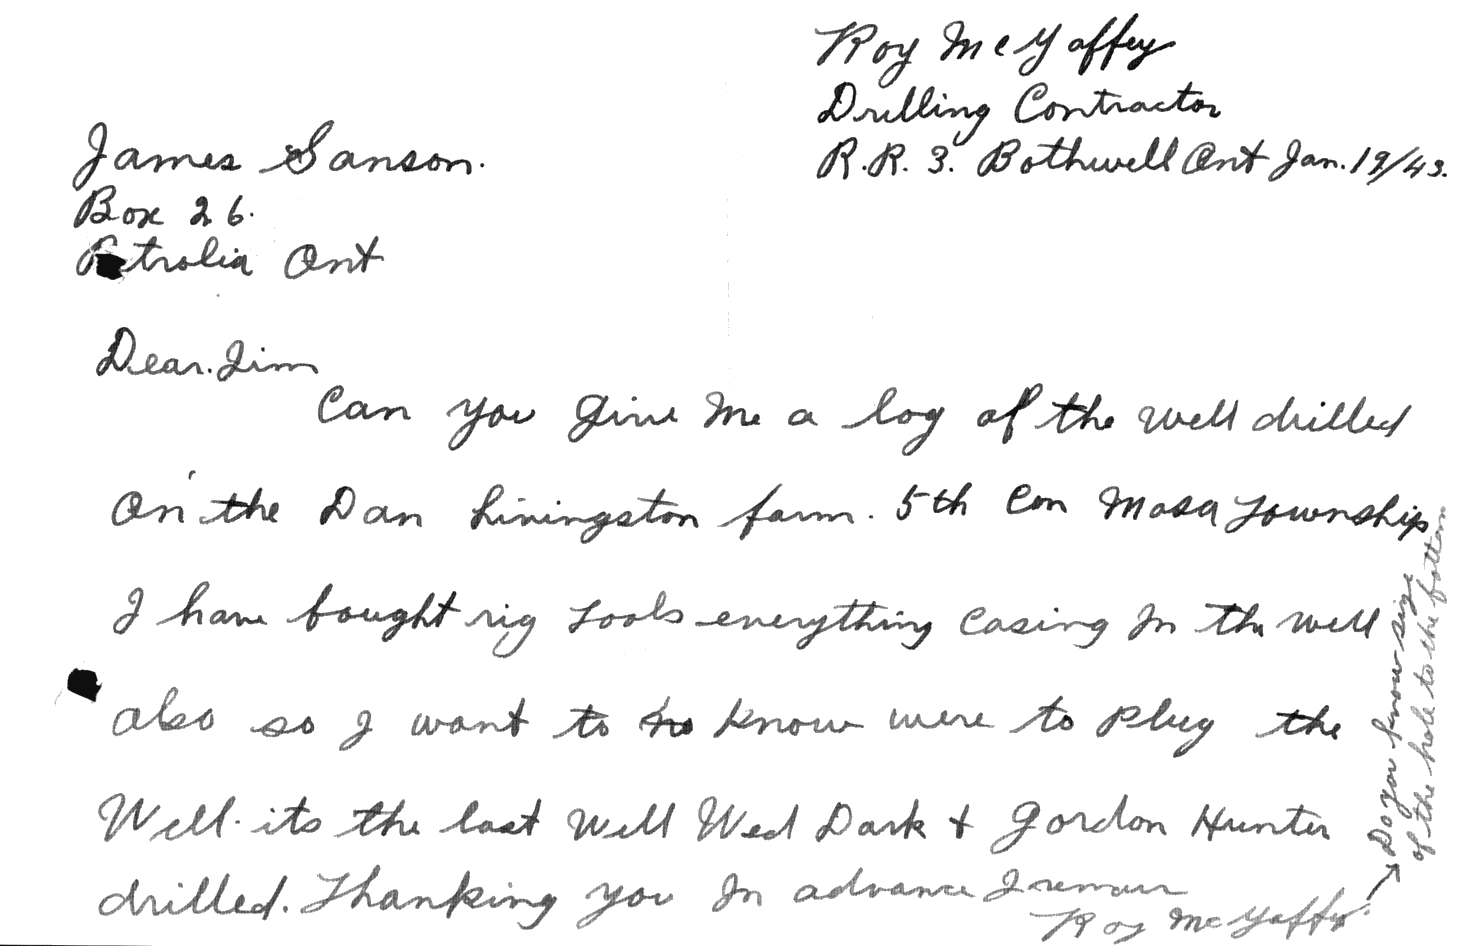 Roy McGaffey
Drilling Contractor
R.R. 3. Bothwell Ont Jan. 19/43.
James Sanson.
Box 26.
Petrolia Ont
Dear. Jim
Can you give Me a log of the well drilled
On the Dan Livingston farm. 5th Con Mosa Township
I have bought rig Tools everything Casing In the well
also so I want to know were to Plug the
Well. its the last Well Wed Dark + Gordon Hunter
drilled. Thanking you In advance I remain
Roy McGaffey
Do you know size
of the hole to the bottom